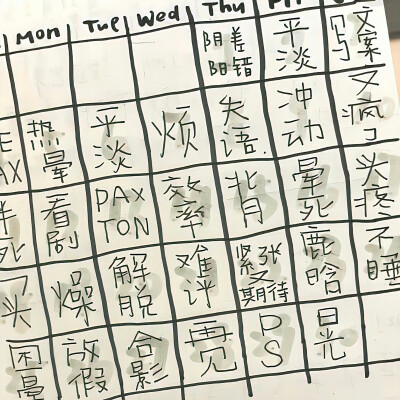 Mon Tue Wed Thu Fri
阴差阳错 平淡 写文案
热晕 平淡 烦 失语 冲动 又疯了
半死 看剧 PAXTON 效率 背 晕死 头疼
头 燥 解脱 难评 紧张又期待 鹿晗 不睡
困 放假 合影 PS